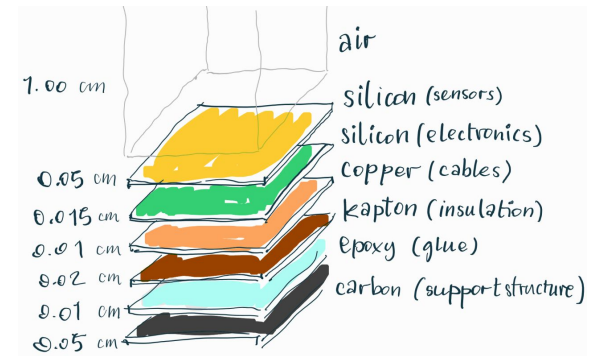 air
1.00 cm
silicon (sensors)
silicon (electronics)
copper (cables)
0.05 cm
kapton (insulation)
0.015 cm
epoxy (glue)
0.01 cm
carbon (support structure)
0.02 cm
0.01 cm
0.05 cm